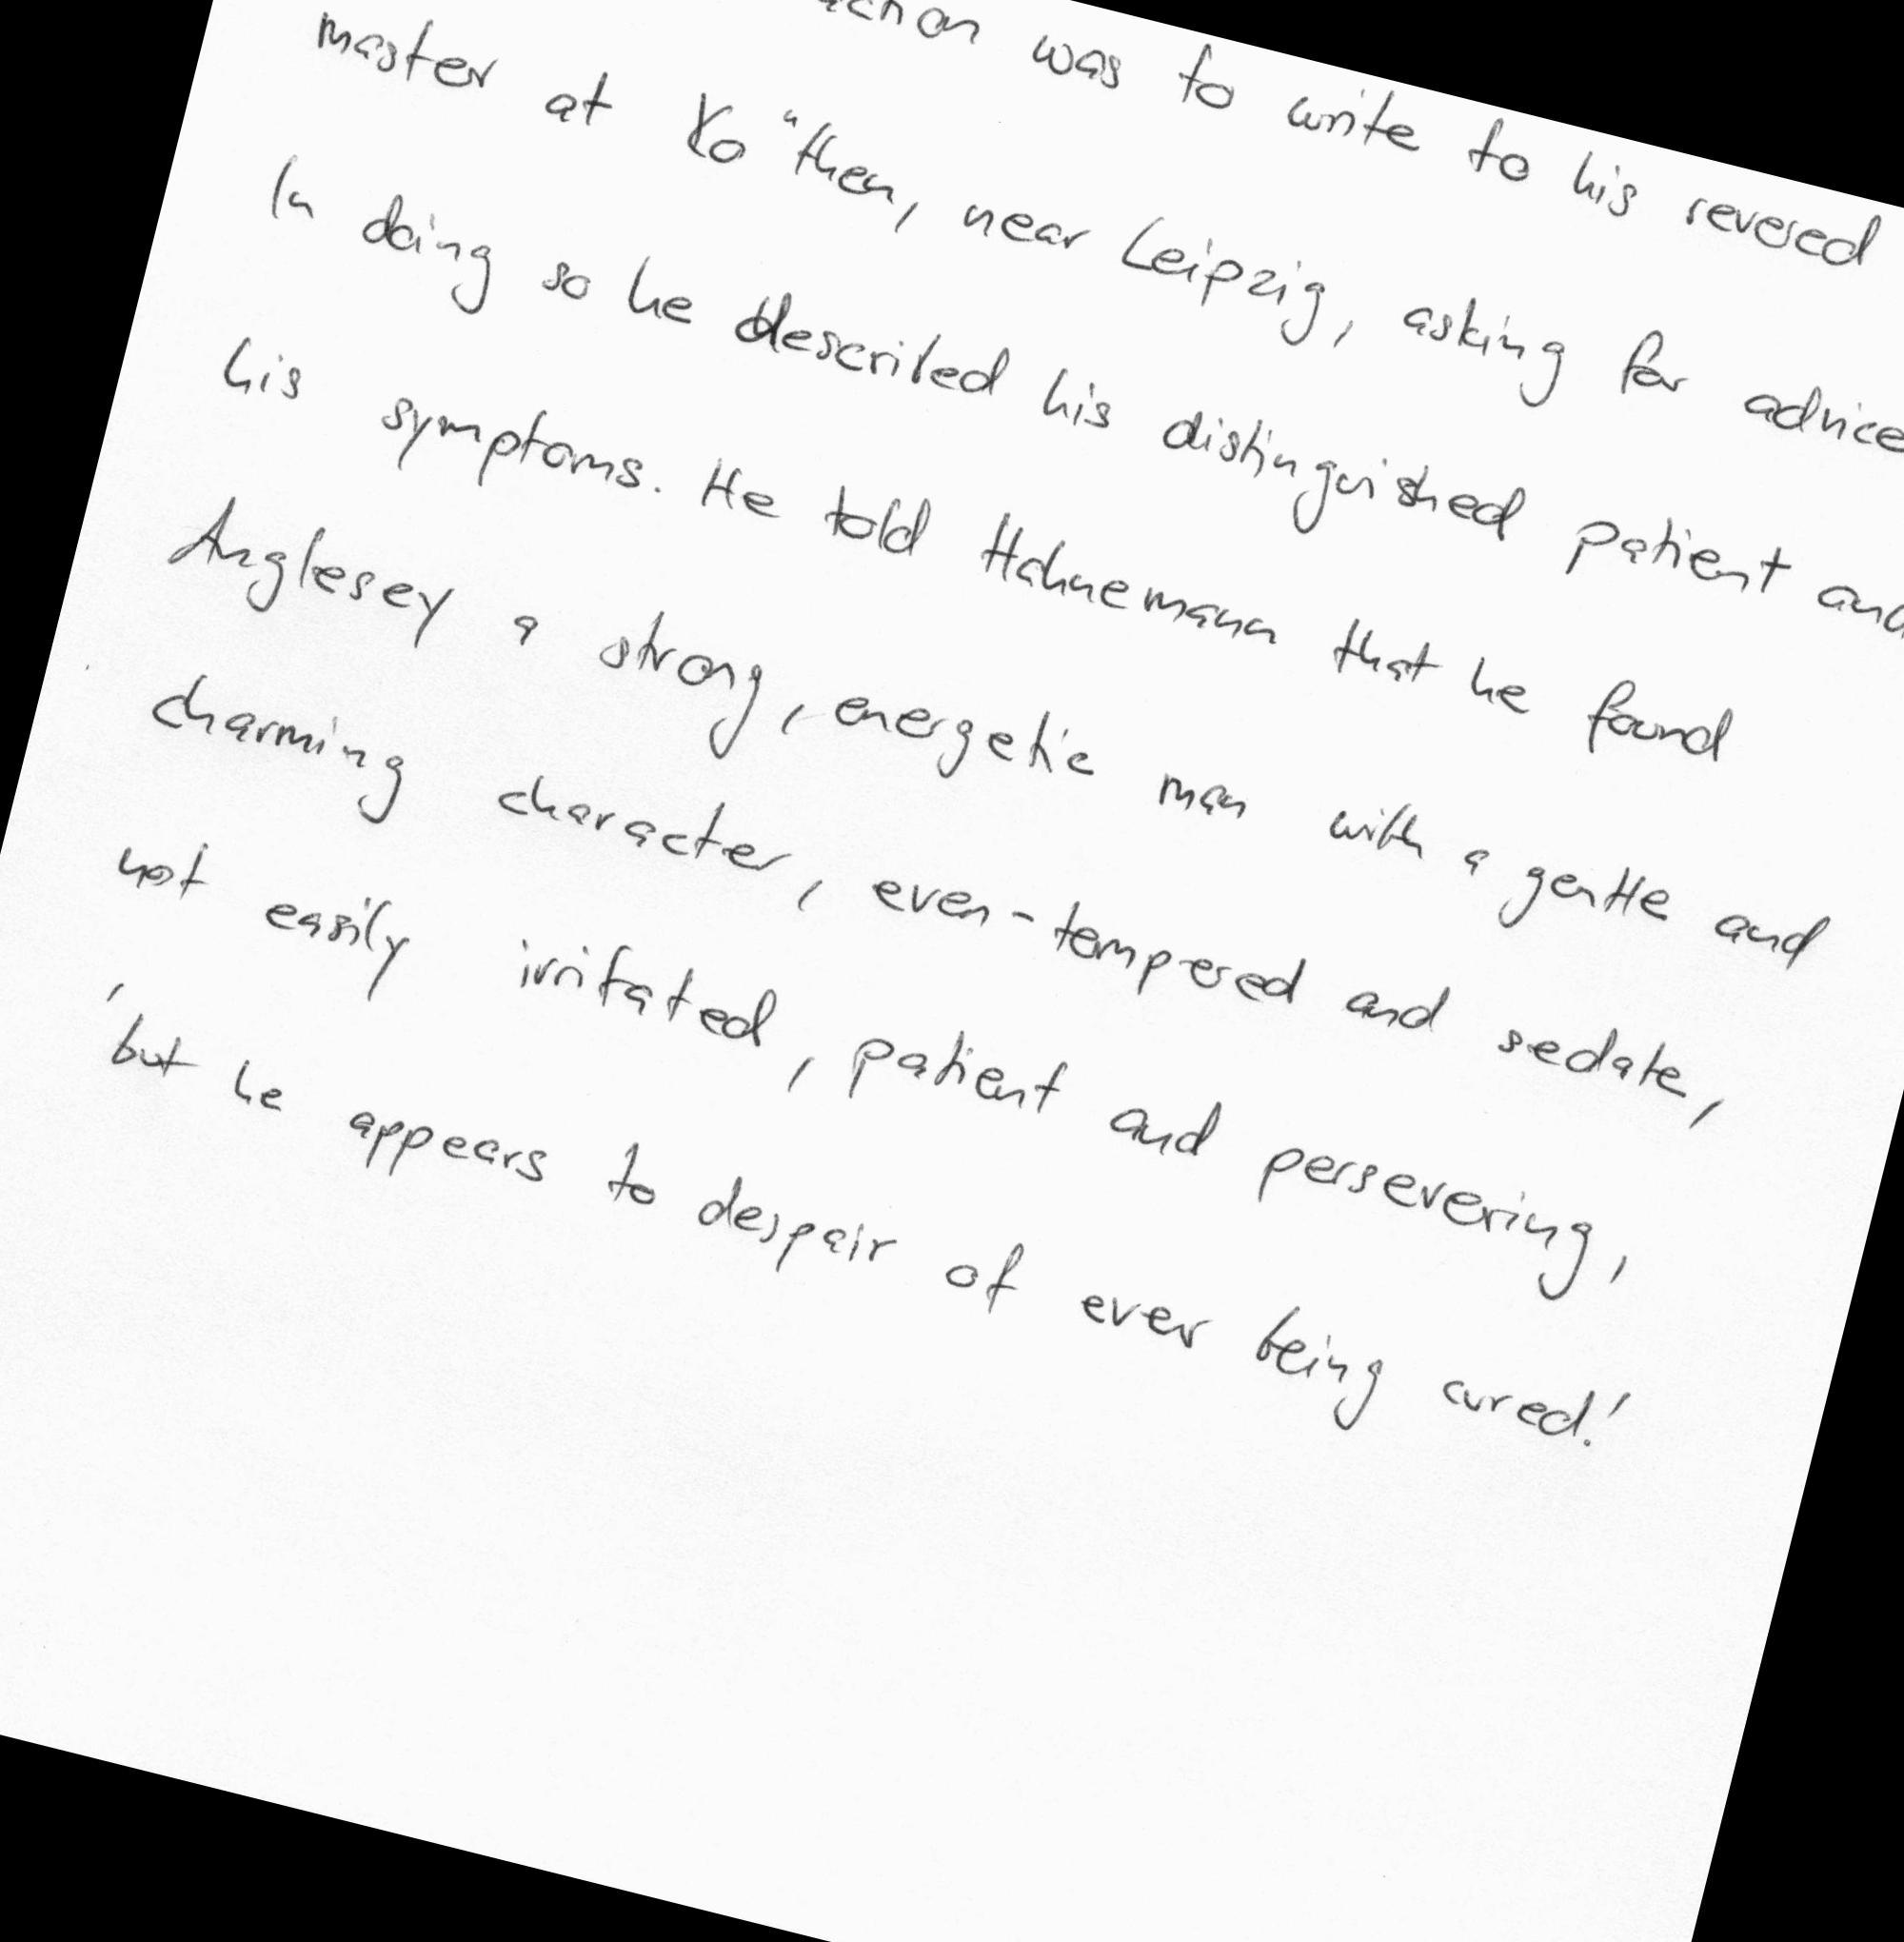 was to write to his revered
master at Ko"then, near Leipzig, asking for advice
In doing so he described his distinguished patient and
his symptoms. He told Hahnemann that he found
Anglesey a strong, energetic man with a gentle and
charming character, even-tempered and sedate,
not easily irritated, patient and persevering,
'but he appears to despair of ever being cured.'